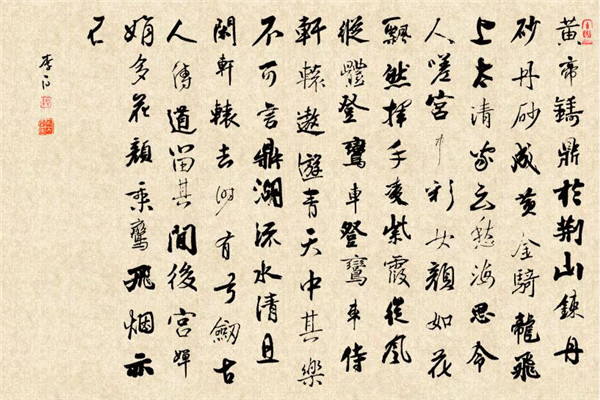 黃帝鑄鼎於荆山鍊丹
砂丹砂成黃金騎龍飛
上太清家云愁海思令
人嗟宮中彩女顏如花
飄然揮手凌紫霞從風
縱體登鸞車登鸞車侍
軒轅遨遊青天中其樂
不可言鼎湖流水清且
閑軒轅去時有弓劔古
人傳道留其間後宮嬋
娟多花顏乘鸞飛烟亦
不
李白